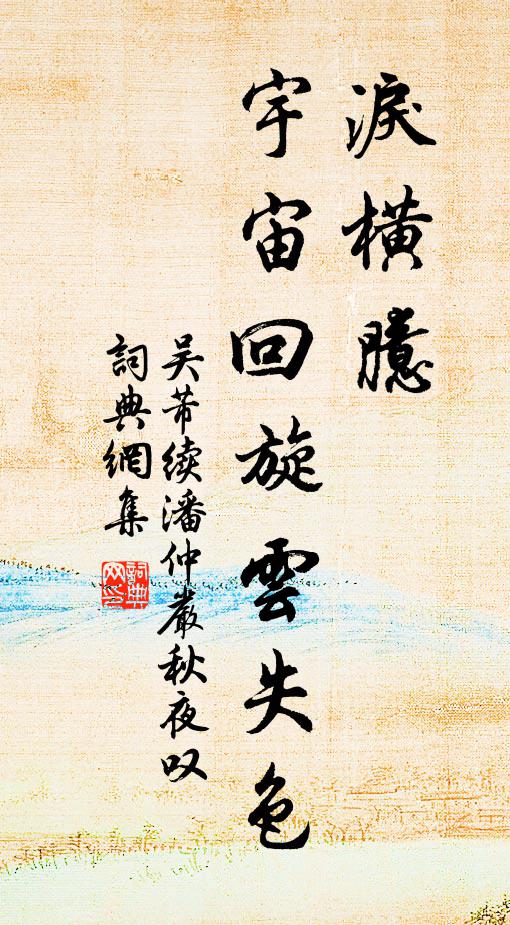 淚橫臆
宇宙回旋雲失色
吴芾续潘仲嚴秋夜叹
詞典網集
詞典
网印